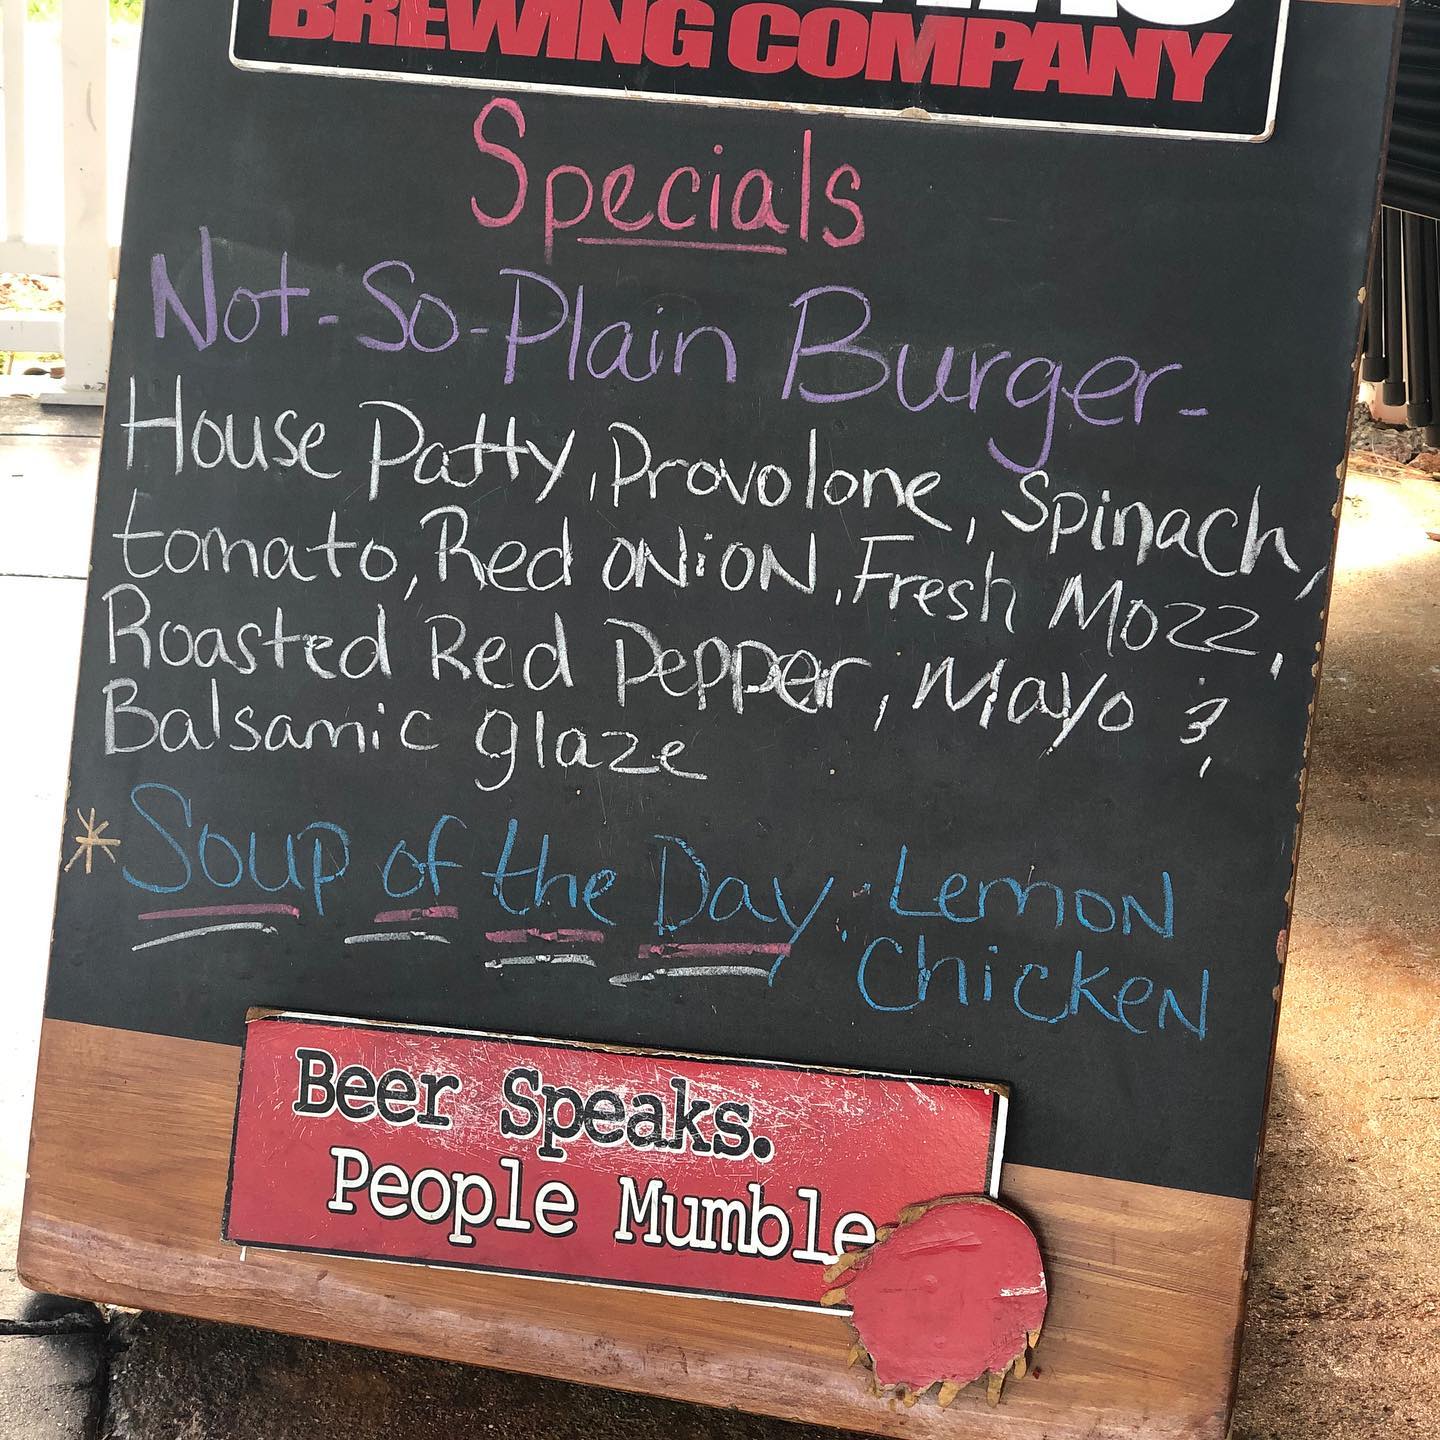 BREWING COMPANY
Specials
Not-So-Plain Burger-
House Patty, Provolone, Spinach,
tomato, Red ONiON, Fresh Mozz,
Roasted Red Pepper, Mayo &
Balsamic glaze
* Soup of the Day: Lemon
Chicken
Beer Speaks.
People Mumble